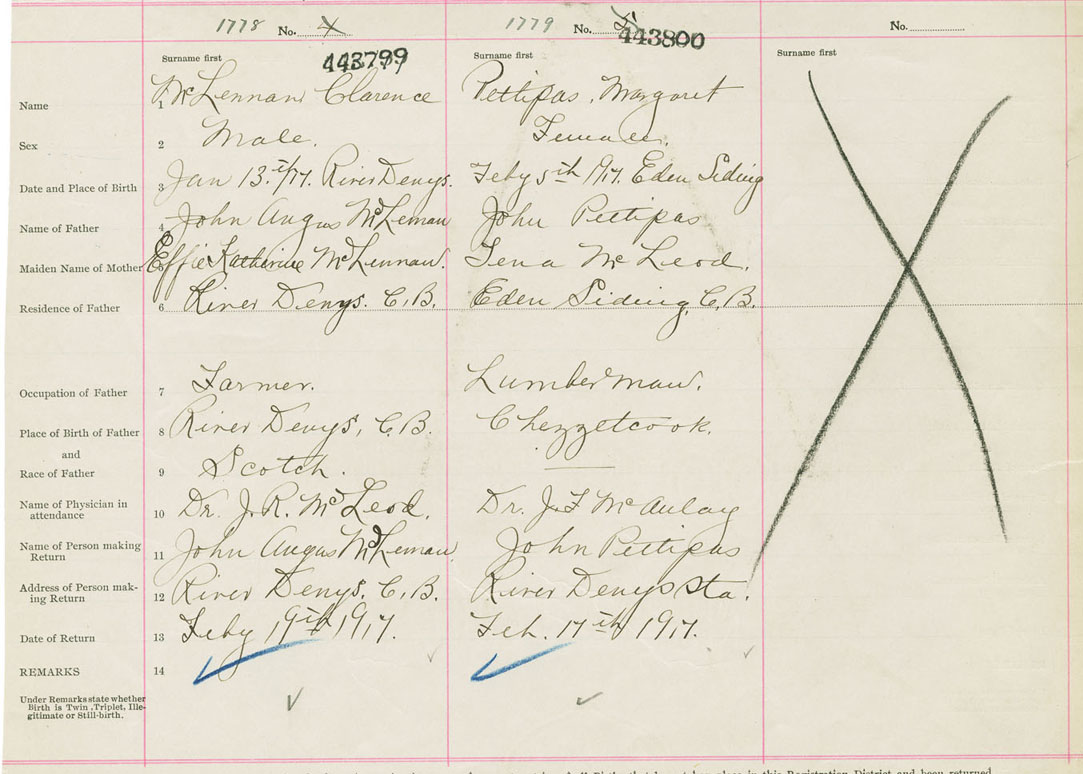 1778 No. 4 1779 No. 5 No.
443799 443800
Surname first Surname first Surname first
Name 1 McLennan Clarence Pettipas, Margaret
Sex 2 Male. Female.
Date and Place of Birth 3 Jan 13.th/17. River Denys. Feby 5th 1917. Eden Siding
Name of Father 4 John Angus McLennan John Pettipas
Maiden Name of Mother 5 Effie Katherine McLennan. Tena McLeod.
Residence of Father 6 River Denys. C.B. Eden Siding, C.B.
Occupation of Father 7 Farmer. Lumberman.
Place of Birth of Father 8 River Denys, C.B. Chezzetcook.
and
Race of Father 9 Scotch.
Name of Physician in
attendance 10 Dr. J. R. McLeod. Dr. J F McAulay
Name of Person making
Return 11 John Angus McLennan John Pettipas
Address of Person mak-
ing Return 12 River Denys, C.B. River Denys Sta.
Date of Return 13 Feby 19th 1917. Feb. 17th 1917.
REMARKS 14
Under Remarks state whether
Birth is Twin, Triplet, Ille-
gitimate or Still-birth.